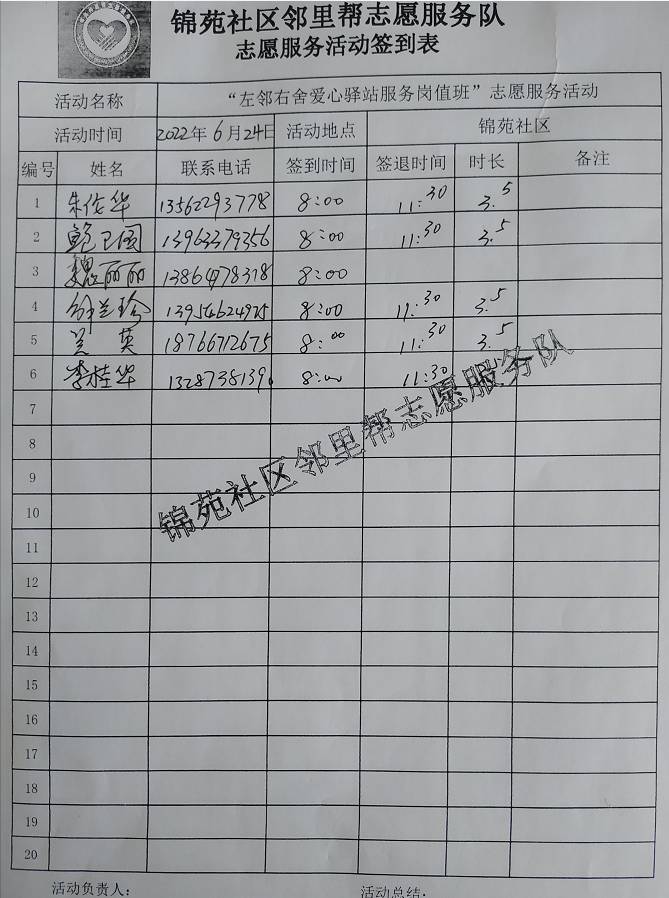 锦苑社区邻里帮志愿服务队
志愿服务活动签到表
活动名称 “左邻右舍爱心驿站服务岗值班”志愿服务活动
活动时间 2022年6月24日 活动地点 锦苑社区
编号 姓名 联系电话 签到时间 签退时间 时长 备注
1 朱佐华 13562293778 8:00 11:30 3.5
2 鲍卫国 13963379356 8:00 11:30 3.5
3 魏丽丽 13864778318 8:00
4 徐兰珍 13954624975 8:00 11:30 3.5
5 兰英 18766712675 8:00 11:30 3.5
6 李桂华 8:00 11:30
锦苑社区邻里帮志愿服务队
7
8
9
10
11
12
13
14
15
16
17
18
19
20
活动负责人: 活动总结: